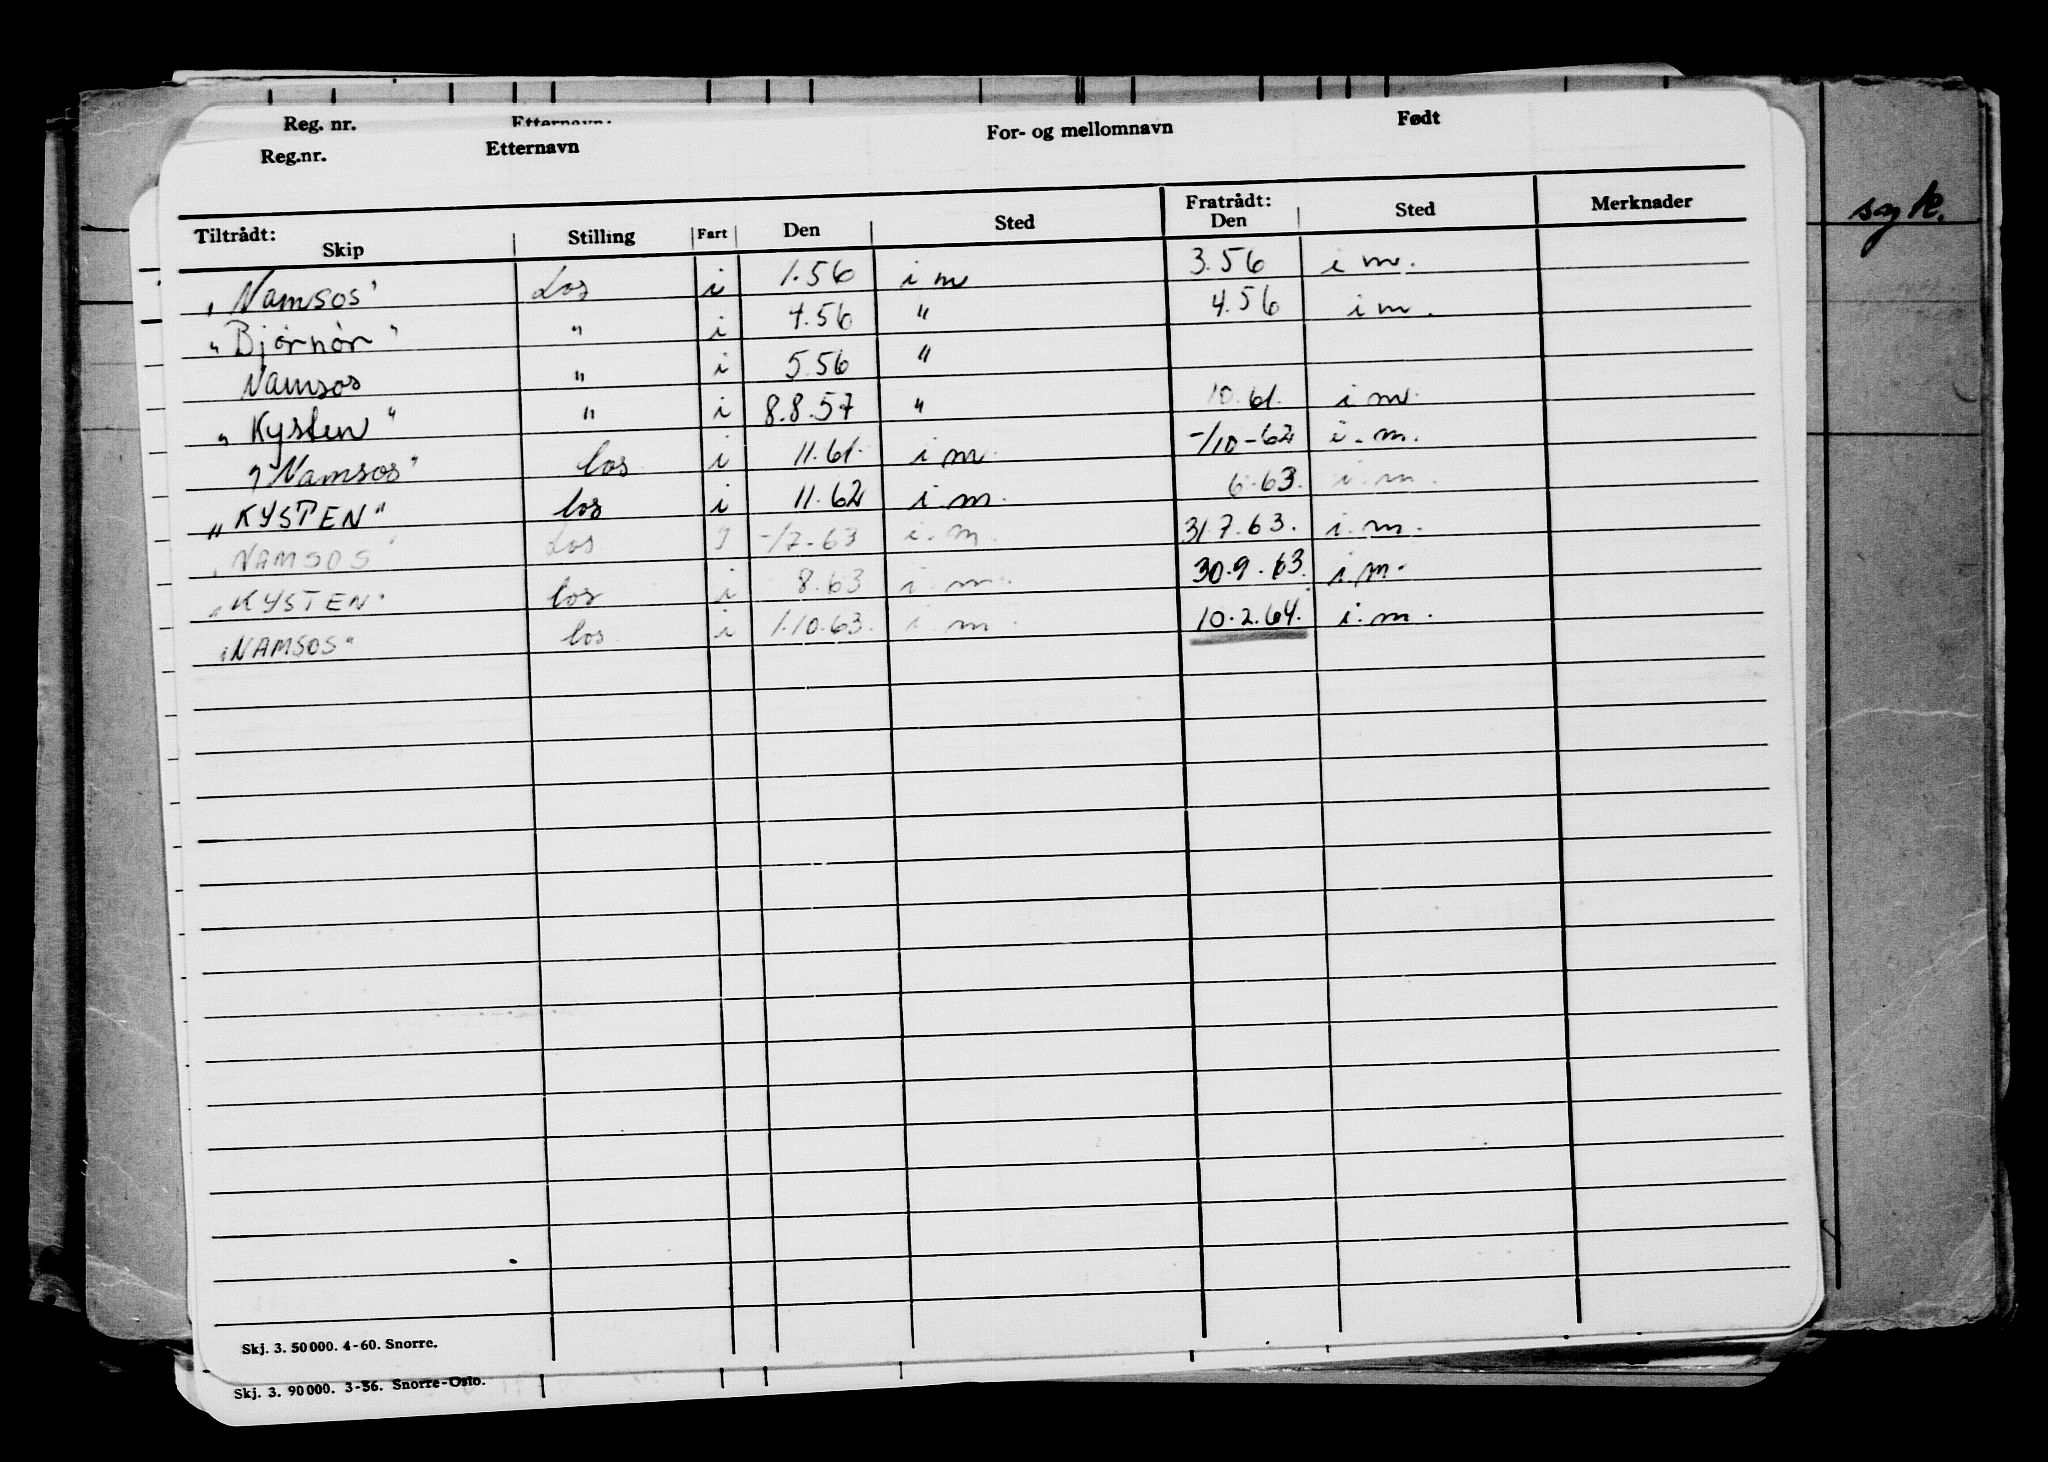 Reg. nr. Etternavn:
Reg.nr. Etternavn For- og mellomnavn Født
Tiltrådt: Fratrådt:
Skip Stilling Fart Den Sted Den Sted Merknader
"Namsos" Los i 1.56 i m 3.56 i m.
"Bjørnør" " i 4.56 " 4.56 i m.
Namsos " i 5.56 "
"Kysten" " i 8.8.57 " 10.61. i m.
"Namsos" los i 11.61. i m. -/10-62 i.m.
"KYSTEN" los i 11.62 i.m. 6.63. i.m.
"NAMSOS" Los i -/7-63 i.m. 31.7.63. i.m.
"KYSTEN" los i 8.63 i.m. 30.9.63. i.m.
"NAMSOS" los i 1.10.63. i.m. 10.2.64. i.m.
Skj. 3. 50 000. 4-60. Snorre.
Skj. 3. 90 000. 3-56. Snorre-Oslo.